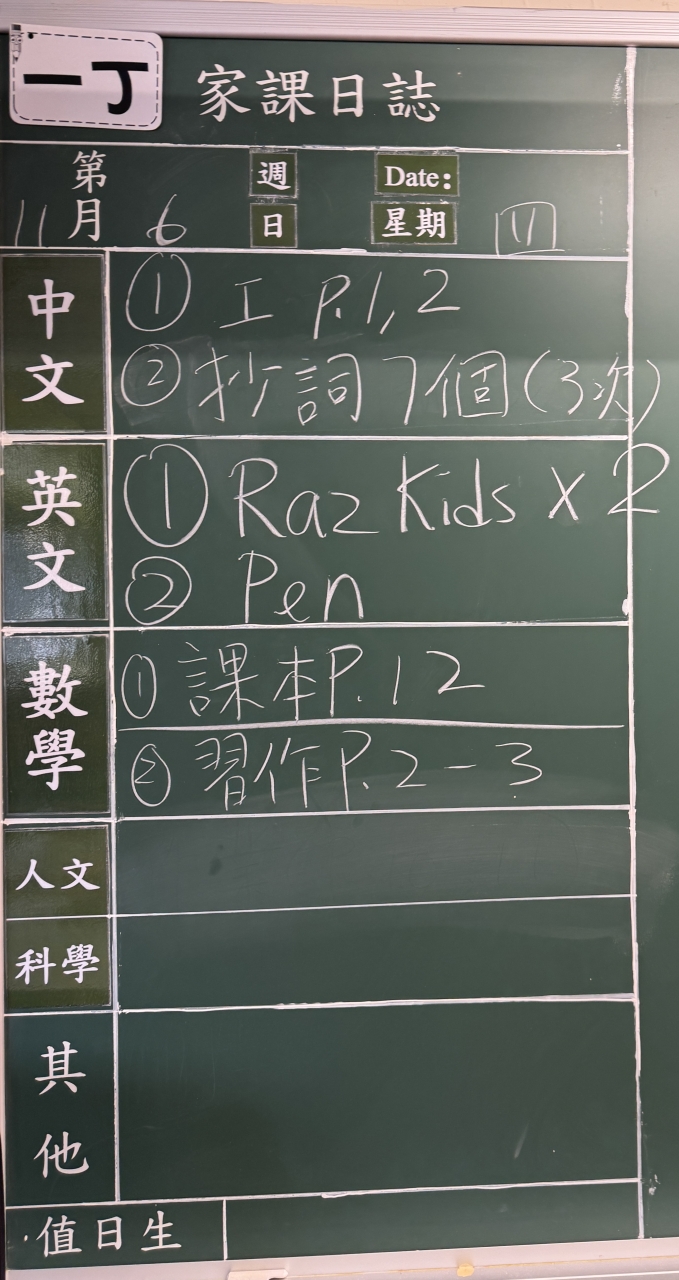 一丁
家課日誌
第 週 Date:
11月 6 日 星期 四
中文
① 工 P.1, 2
② 抄詞7個(3次)
英文
① Raz Kids × 2
② Pen
數學
① 課本P.12
② 習作P.2-3
人文
科學
其他
值日生